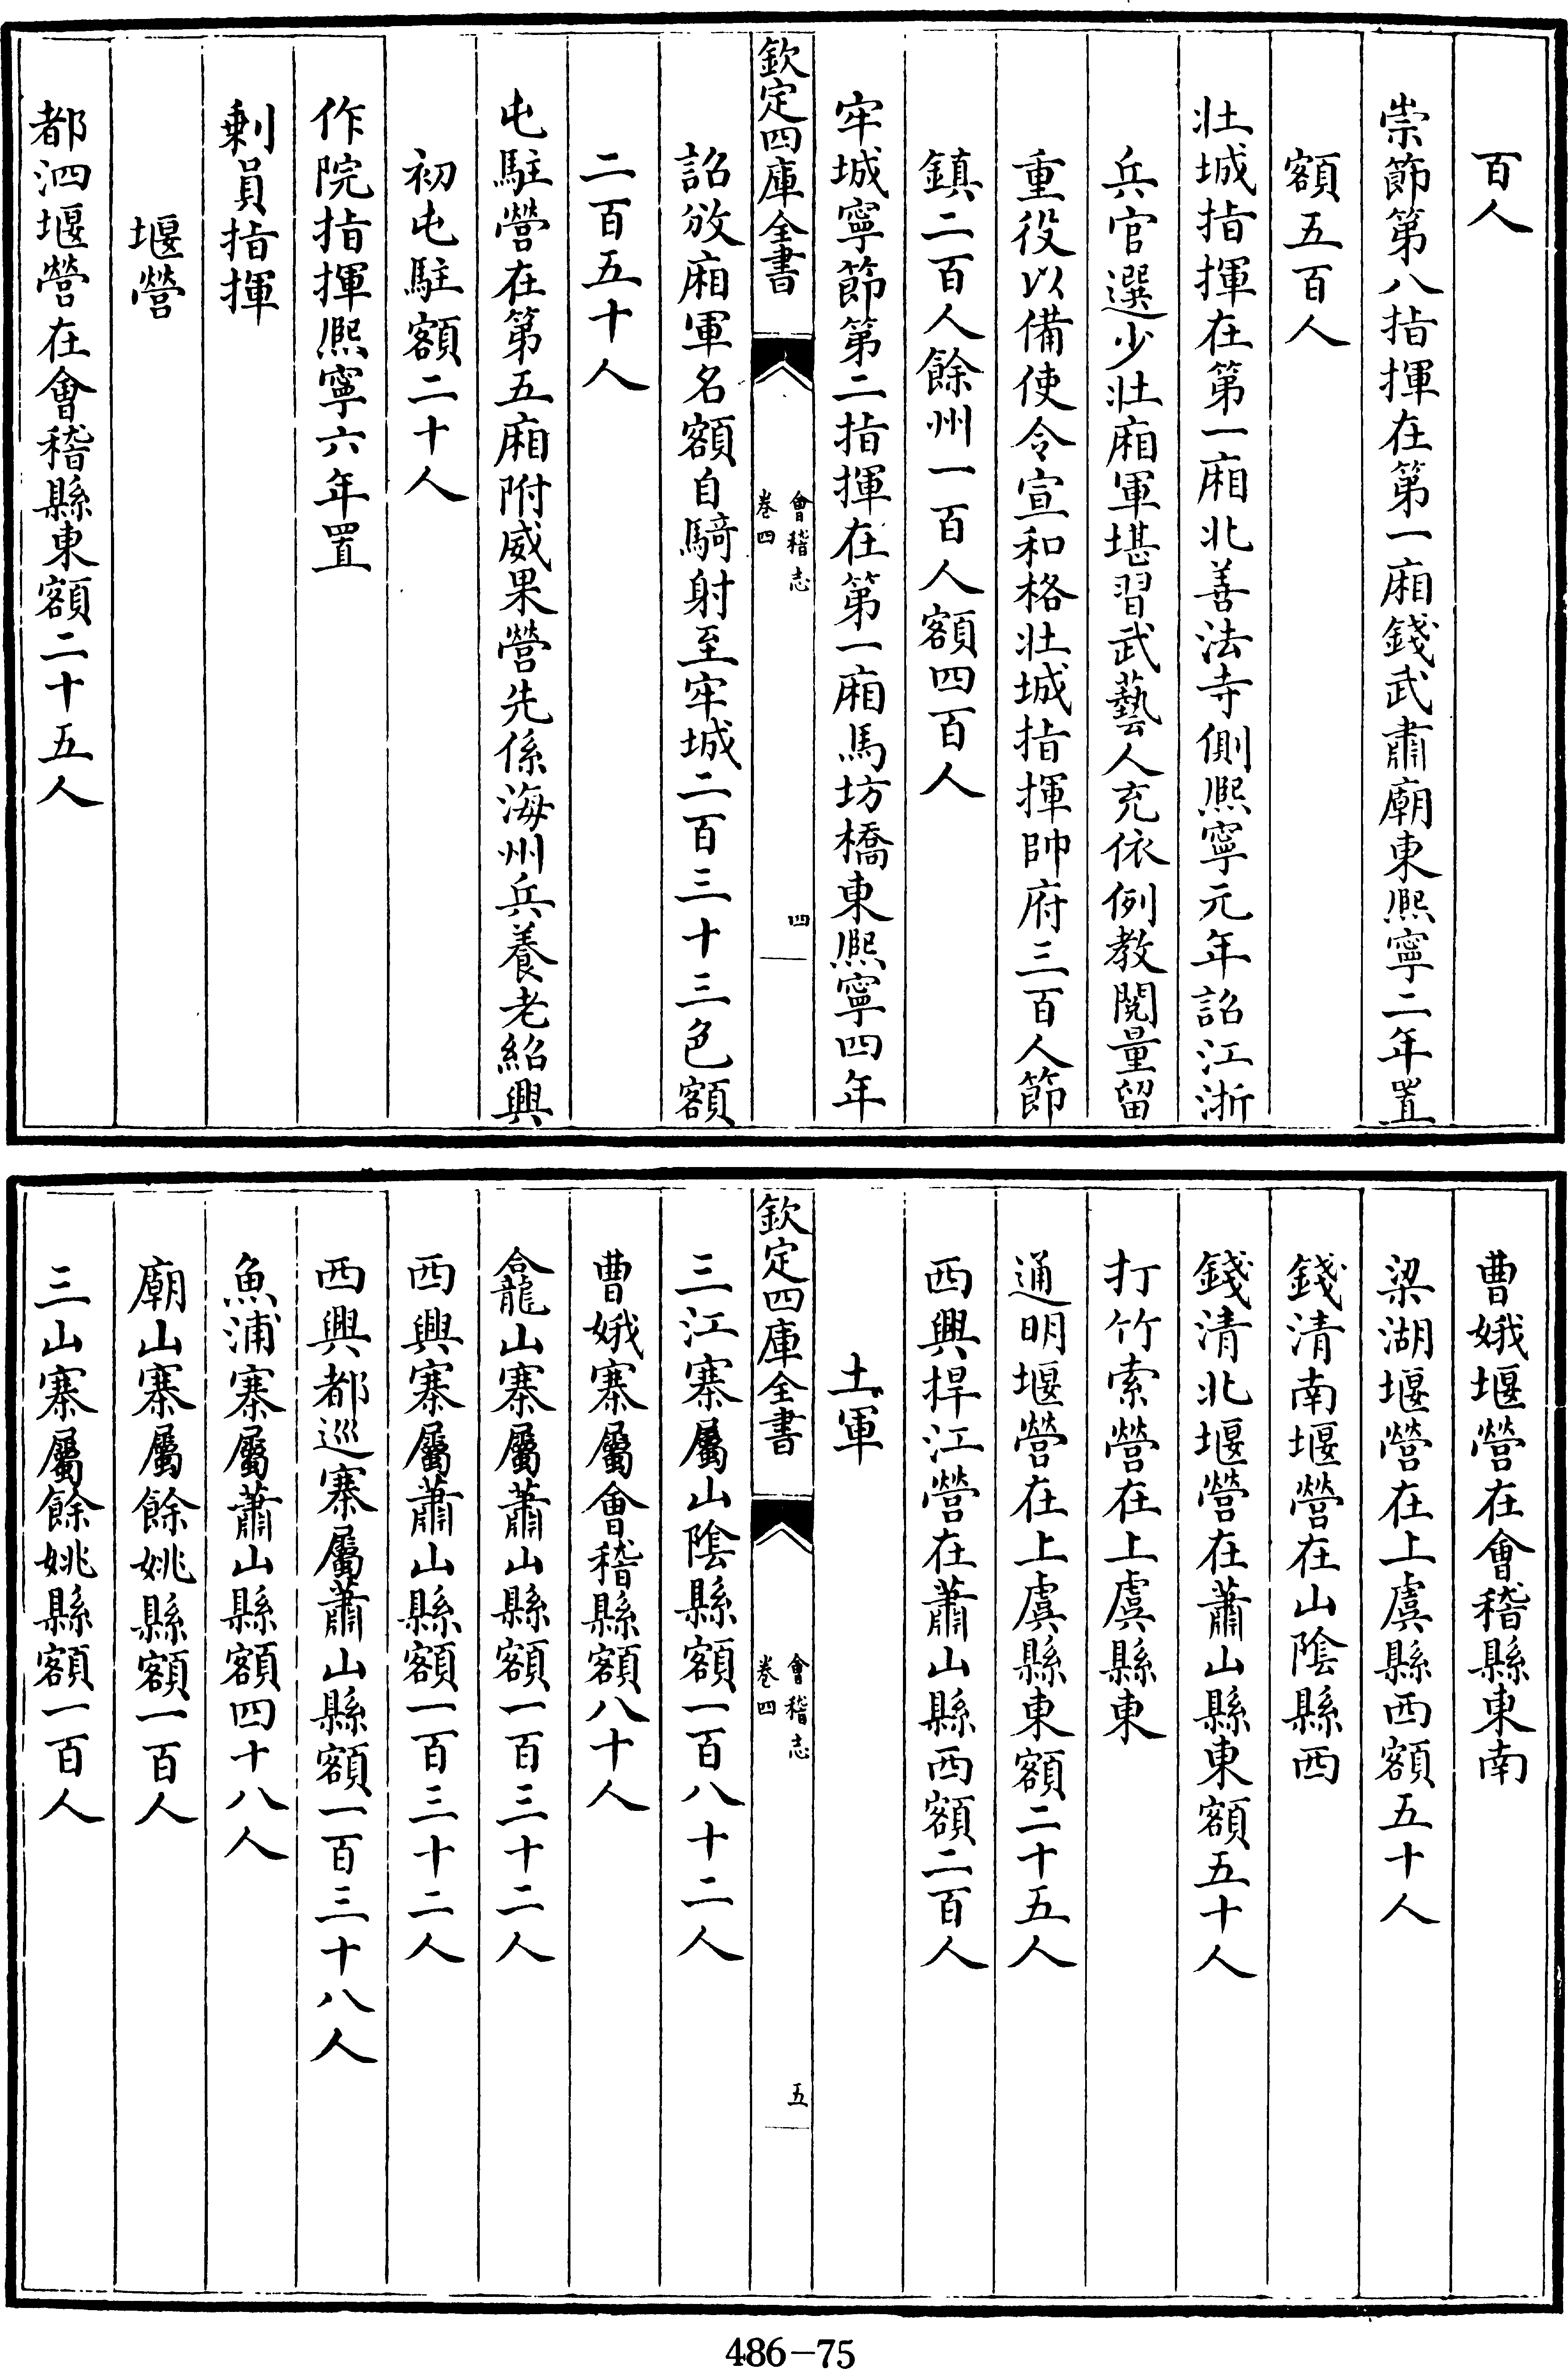 百人
崇節第八指揮在第一廂錢武肅廟東熈寧二年置
額五百人
壯城指揮在第一廂北善法寺側熈寧元年詔江浙
兵官選少壯廂軍堪習武藝人充依例教閱量留
重役以備使令宣和格壯城指揮帥府三百人節
鎮二百人餘州一百人額四百人
牢城寧節第二指揮在第一廂馬坊橋東熈寧四年
欽定四庫全書
會稽志
卷四
四
詔放廂軍名額自騎射至牢城二百三十三色額
二百五十人
屯駐營在第五廂附威果營先係海州兵養老紹興
初屯駐額二十人
作院指揮熈寧六年置
剰員指揮
堰營
都泗堰營在會稽縣東額二十五人
曹娥堰營在會稽縣東南
梁湖堰營在上虞縣西額五十人
錢清南堰營在山陰縣西
錢清北堰營在蕭山縣東額五十人
打竹索營在上虞縣東
通明堰營在上虞縣東額二十五人
西興捍江營在蕭山縣西額二百人
土軍
欽定四庫全書
會稽志
卷四
五
三江寨屬山陰縣額一百八十二人
曹娥寨屬會稽縣額八十人
龕山寨屬蕭山縣額一百三十二人
西興寨屬蕭山縣額一百三十二人
西興都巡寨屬蕭山縣額一百三十八人
魚浦寨屬蕭山縣額四十八人
廟山寨屬餘姚縣額一百人
三山寨屬餘姚縣額一百人
486-75